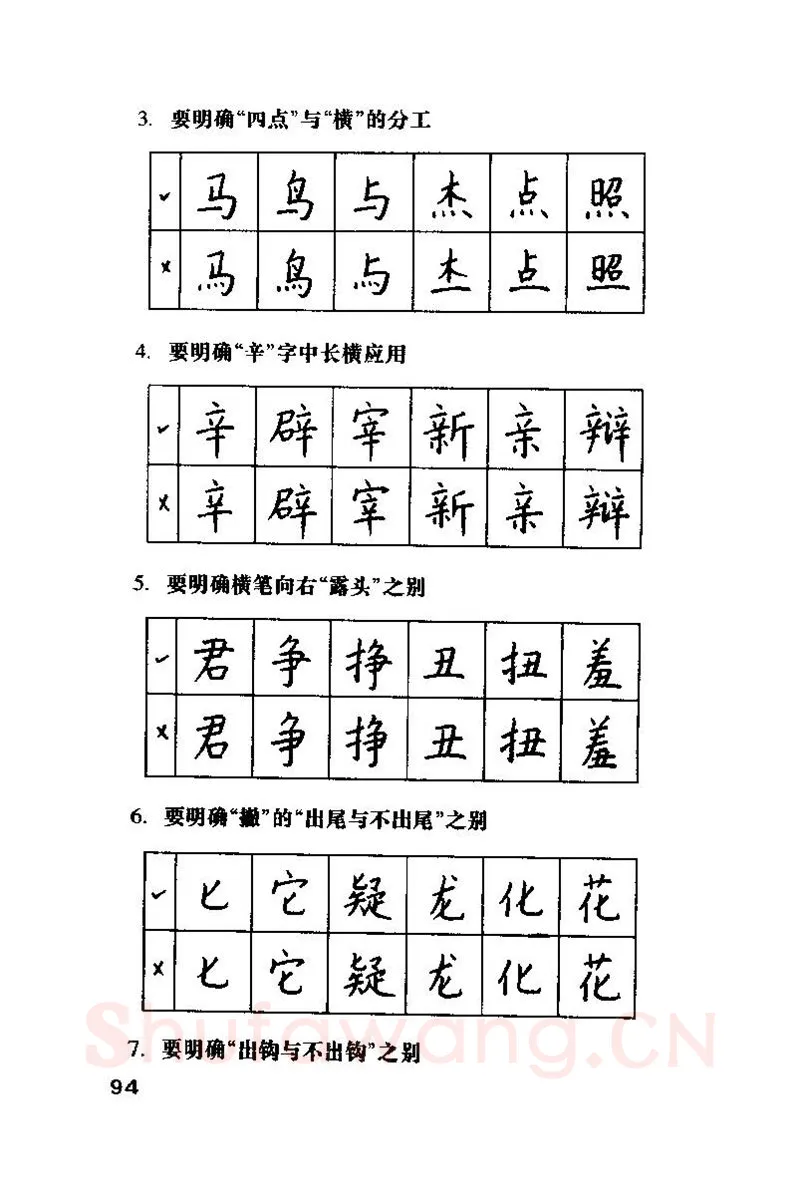 3. 要明确“四点”与“横”的分工
✓ 马 鸟 与 杰 点 照
× 马 鸟 与 杰 点 照
4. 要明确“辛”字中长横应用
✓ 辛 辟 宰 新 亲 辩
× 辛 辟 宰 新 亲 辩
5. 要明确横笔向右“露头”之别
✓ 君 争 挣 丑 扭 羞
× 君 争 挣 丑 扭 羞
6. 要明确“撇”的“出尾与不出尾”之别
✓ 匕 它 疑 龙 化 花
× 匕 它 疑 龙 化 花
Shufawang.CN
7. 要明确“出钩与不出钩”之别
94